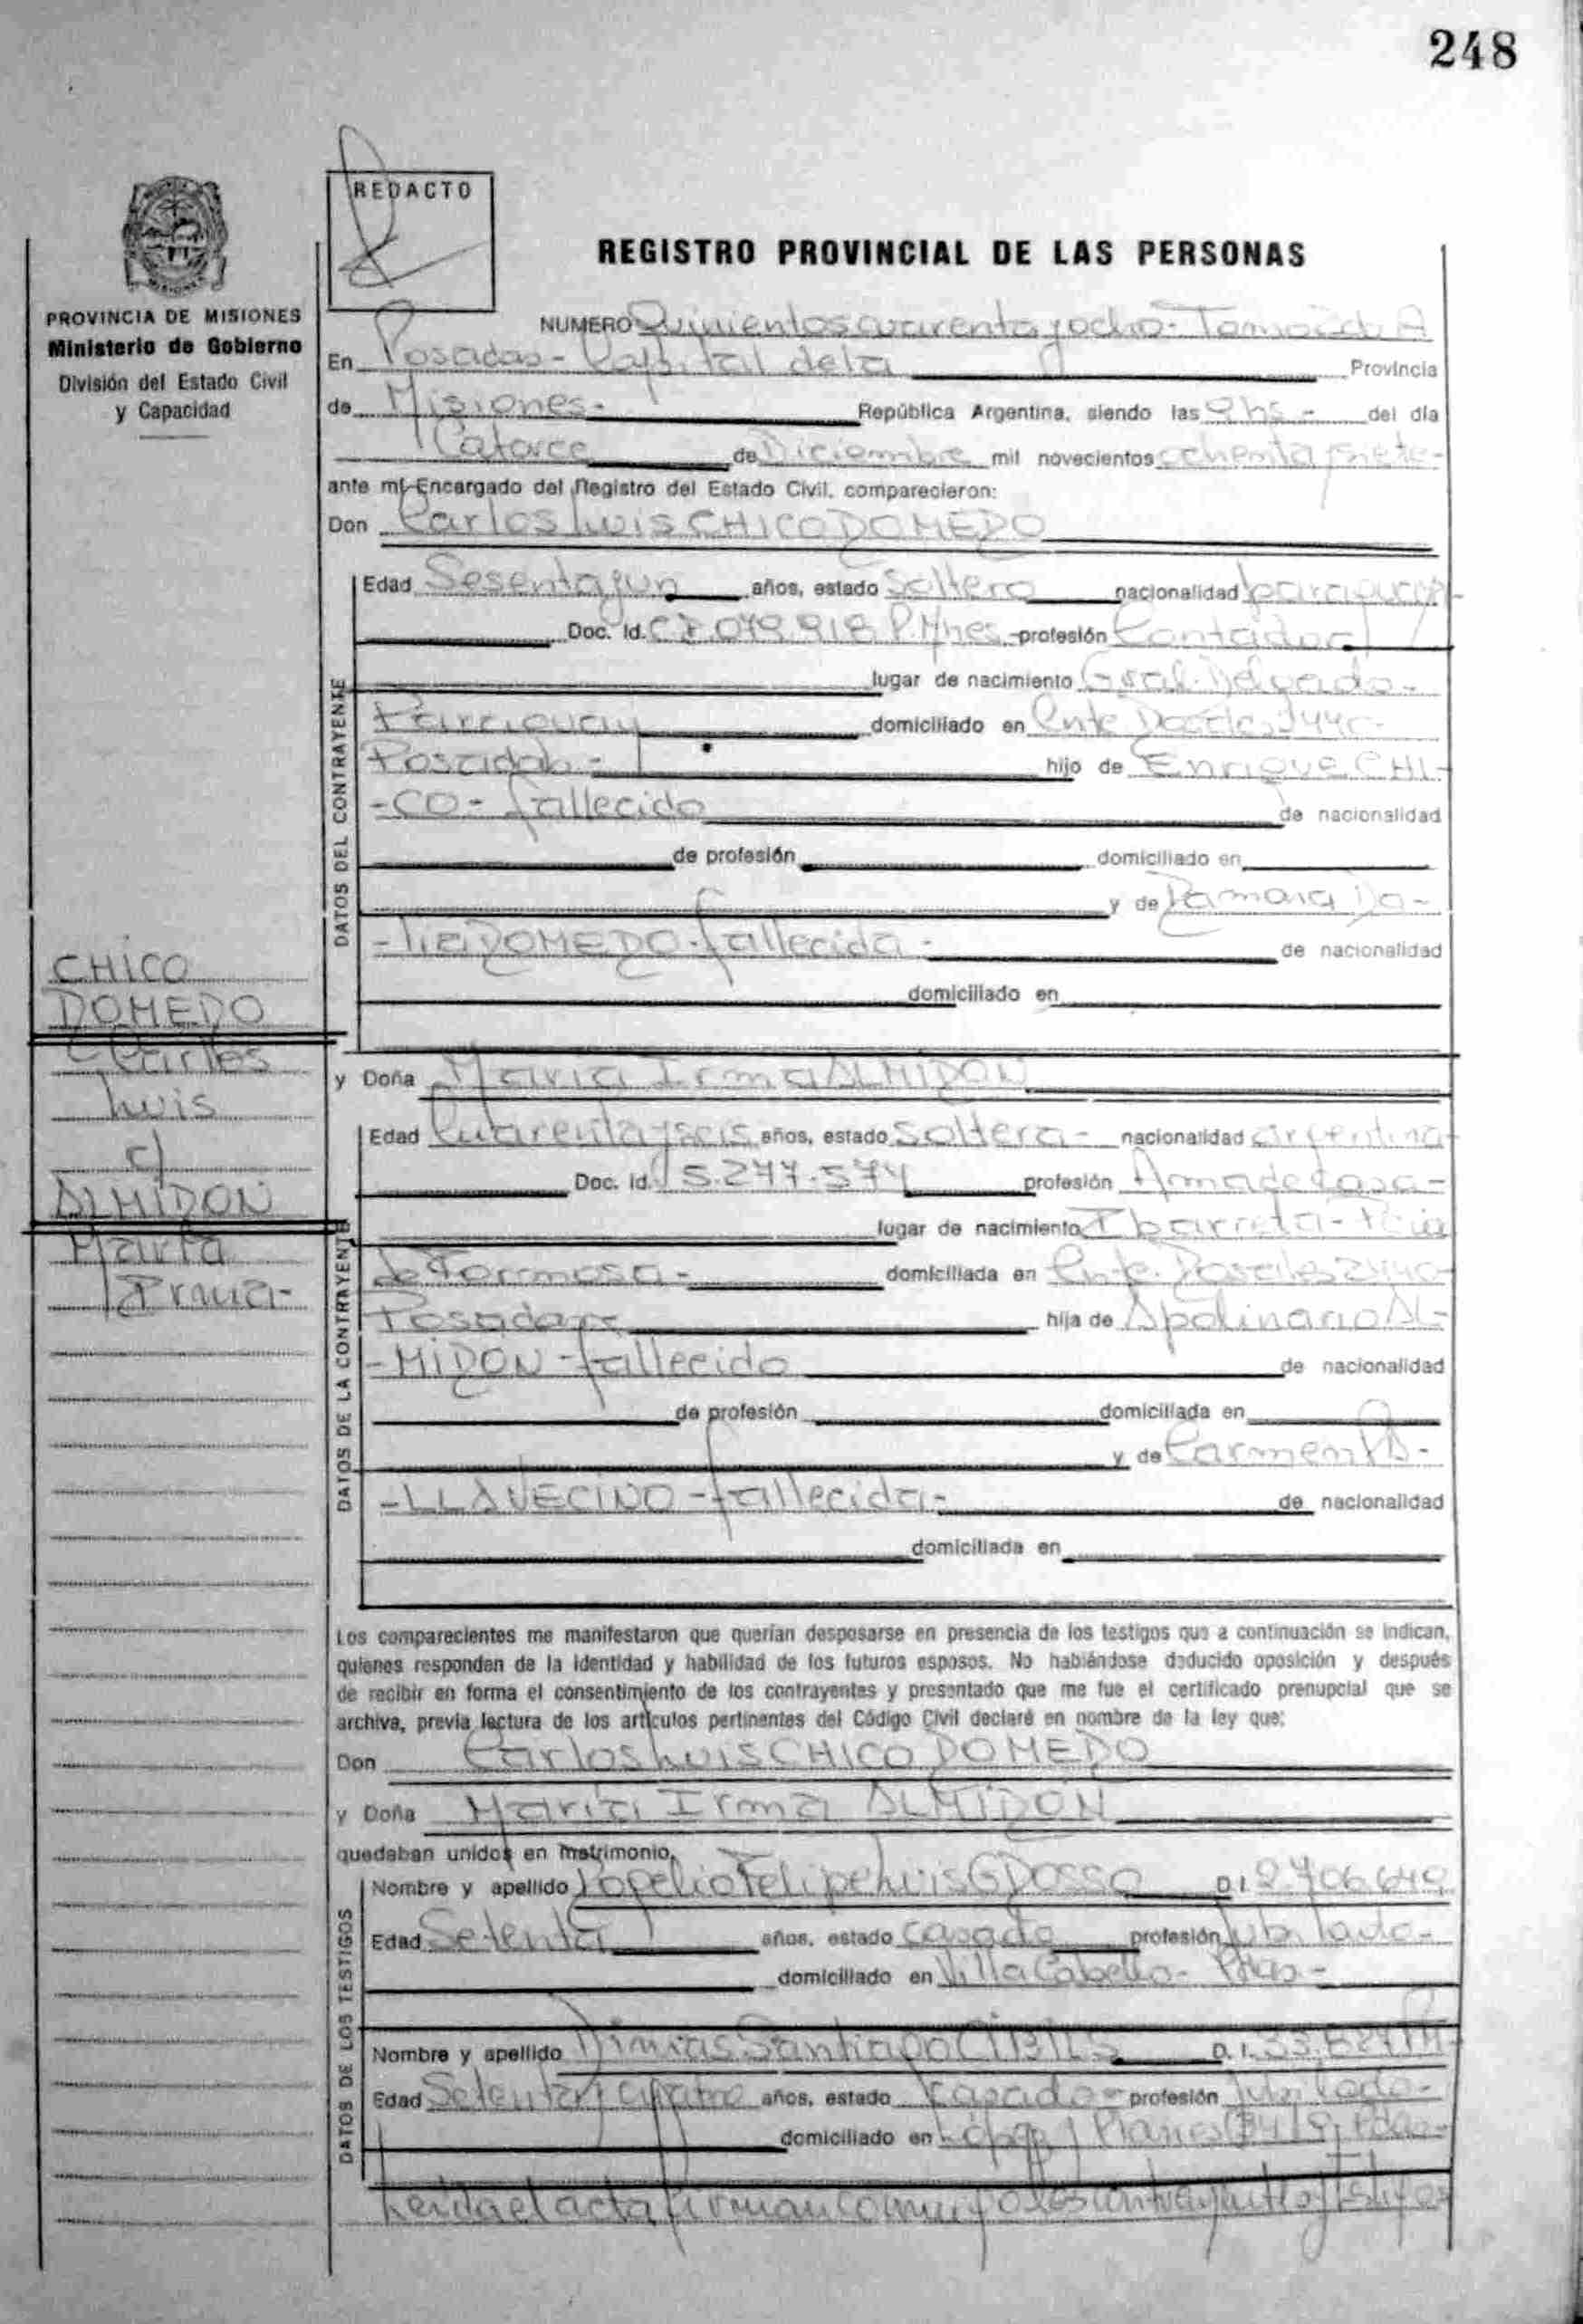 248
REDACTO
REGISTRO PROVINCIAL DE LAS PERSONAS
PROVINCIA DE MISIONES
Ministerio de Gobierno
División del Estado Civil
y Capacidad
NUMERO Quinientos cuarenta y ocho - Tomo A
En Posadas - Capital de la Provincia
de Misiones - República Argentina, siendo las 9 hs - del día
Catorce de Diciembre mil novecientos ochenta y siete -
ante mí Encargado del Registro del Estado Civil, comparecieron:
Don Carlos Luis CHICO DOMEDO
Edad Sesenta y un años, estado Soltero nacionalidad paraguaya -
Doc. Id. profesión Contador
lugar de nacimiento Gral. Delgado -
Paraguay domiciliado en
Posadas - hijo de Enrique CHI-
-CO - fallecido de nacionalidad
de profesión domiciliado en
y de Ramona
DOMEDO - fallecida - de nacionalidad
domiciliado en
CHICO
DOMEDO
Carlos
Luis
c/
ALMIDON
María
Irma -
y Doña María Irma ALMIDON
Edad Cuarenta y seis años, estado Soltera - nacionalidad argentina
Doc. Id. 5.277.574 profesión Ama de Casa -
lugar de nacimiento Ibarreta - Pcia
de Formosa - domiciliada en
Posadas hija de Apolinario AL-
-MIDON - fallecido de nacionalidad
de profesión domiciliada en
y de Carmen VI-
-LLAVECINO - fallecida - de nacionalidad
domiciliada en
Los comparecientes me manifestaron que querían desposarse en presencia de los testigos que a continuación se indican,
quienes responden de la identidad y habilidad de los futuros esposos. No habiéndose deducido oposición y después
de recibir en forma el consentimiento de los contrayentes y presentado que me fue el certificado prenupcial que se
archiva, previa lectura de los artículos pertinentes del Código Civil declaré en nombre de la ley que:
Don Carlos Luis CHICO DOMEDO
y Doña María Irma ALMIDON
quedaban unidos en matrimonio.
Nombre y apellido Rogelio Felipe Luis GROSSO D.I. 2.706.649
Edad Setenta años, estado casado profesión jubilado -
domiciliado en Villa Cabello - Pdas -
Nombre y apellido Dimas Santiago CIBILS D.I.
Edad Setenta y cuatro años, estado casado - profesión jubilado -
domiciliado en López y Planes
Leida el acta firman conmigo los contrayentes y testigos
DATOS DEL CONTRAYENTE
DATOS DE LA CONTRAYENTE
DATOS DE LOS TESTIGOS